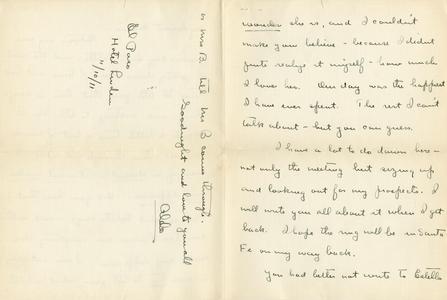 wonder she is, and I couldn't
make you believe - because I didn't
quite realize it myself - how much
I love her. Our day was the happiest
I have ever spent. The rest I can't
talk about - but you can guess.
I have a lot to do down here -
not only the meeting but signing up
and looking out for my prospects. I
will write you all about it when I get
back. I hope the ring will be in Santa
Fe on my way back.
You had better not write to Estella
or Mrs B. till Mr B comes through.
Goodnight and love to you all
Aldo
El Paso
Hotel
11/10/11